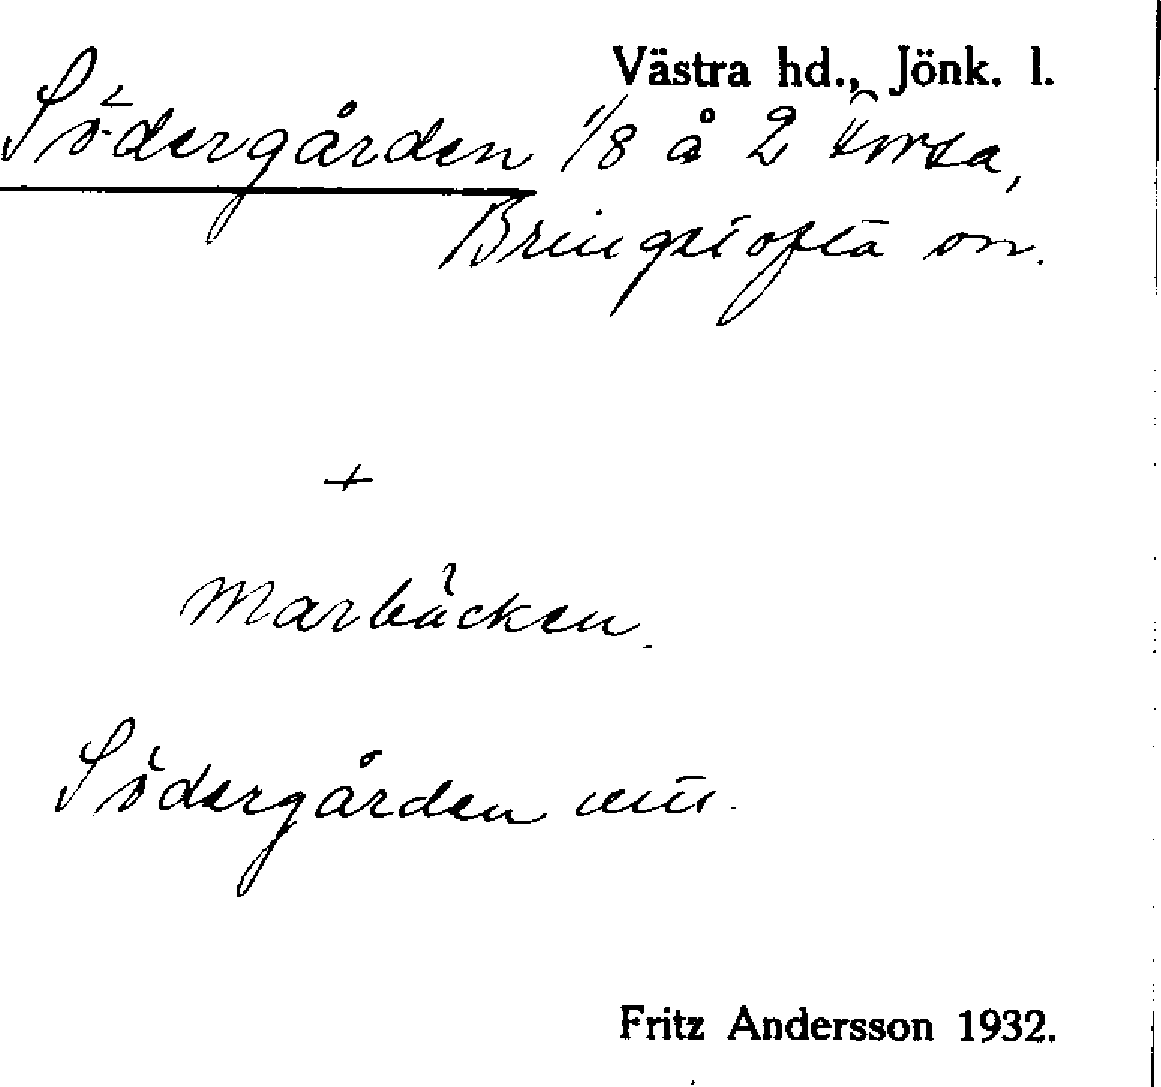 Västra hd., Jönk. l.
Södergården 1/8 å 2 Korsa,
Bringstofta sn.
+
Marbäcken.
Södergården
Fritz Andersson 1932.